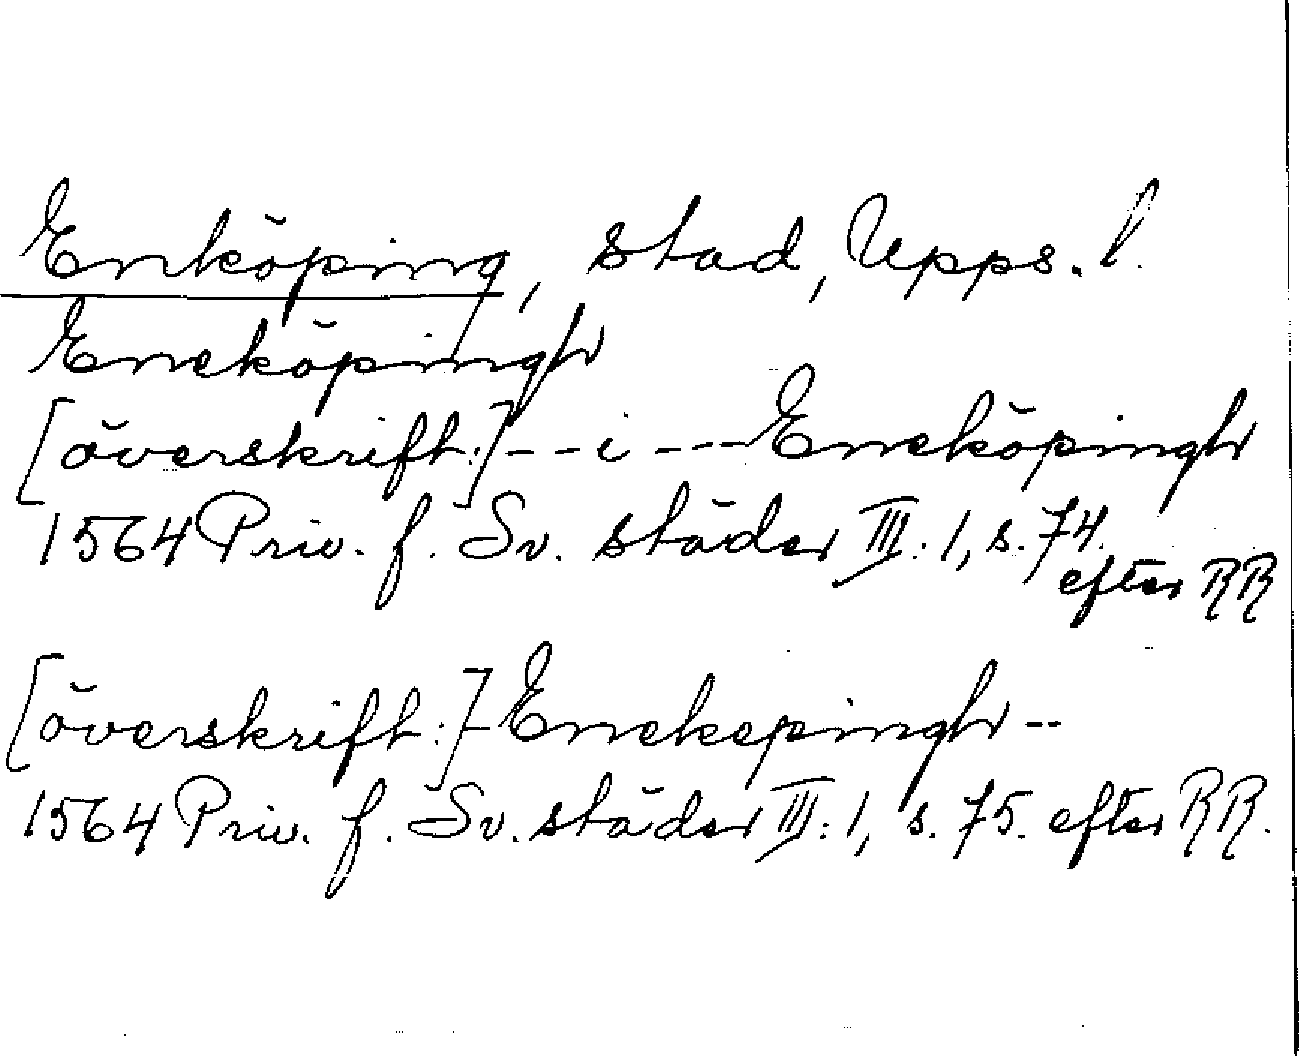 Enköping, stad, Upps. l.
Eneköpingh
[överskrift:] - - i - - - Eneköpingh
1564 Priv. f. Sv. städer III: 1, s. 74.
efter RR
[överskrift:] - Enekepingh - -
1564 Priv. f. Sv. städer III: 1, s. 75. efter RR.